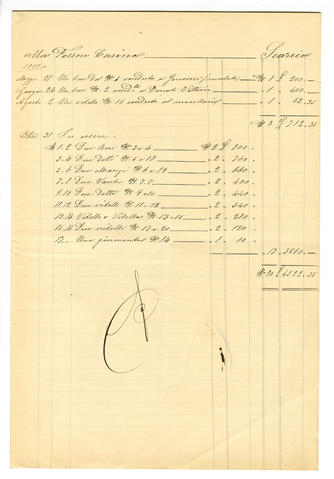 alla Colonna Casina Scarico
Maggio 28 Un bue del N. 1 venduto a N. 1 £ 200.-
Giugno 24 Un bue N. 2 vend. a Donati Vittorio " 1 " 450.-
Agosto 2 Un vitello N. 16 venduto al macellaio " 1 " 62.35
N. 3 £ 712.35
Dbre 31 In essere
N. 1.2 Due buoi N. 3 e 4 N. 2 £ 900.-
3.4 Due detti N. 5 e 13 " 2 " 760.-
5.6 Due Manzi N. 6 e 19 " 2 " 660.-
7.8 Due Vacche N. 7.8 " 2 " 400.-
9.10 Due dette N. 9 e 10 " 2 " 440.-
11.12 Due vitelli N. 11-12 " 2 " 340.-
13.14 Vitello e Vitella N. 13-15 " 2 " 220.-
15.16 Due vitelli N. 17 e 20 " 2 " 120.-
17.- Una giumenta N. 14 " 1 " 10.-
" 17 " 3810.-
N. 20 £ 4522.35